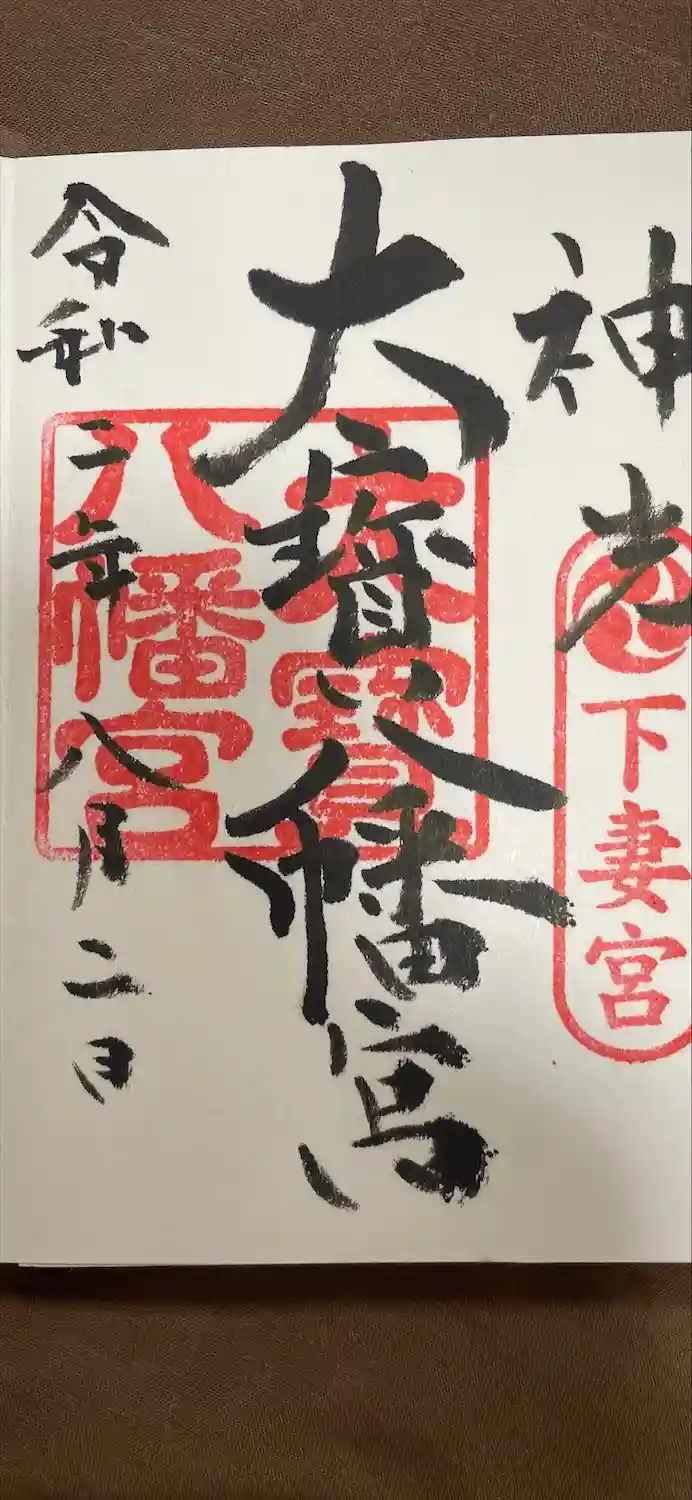 神光
下妻宮
大寶八幡宮
大寶
八幡宮
令和二年八月二日